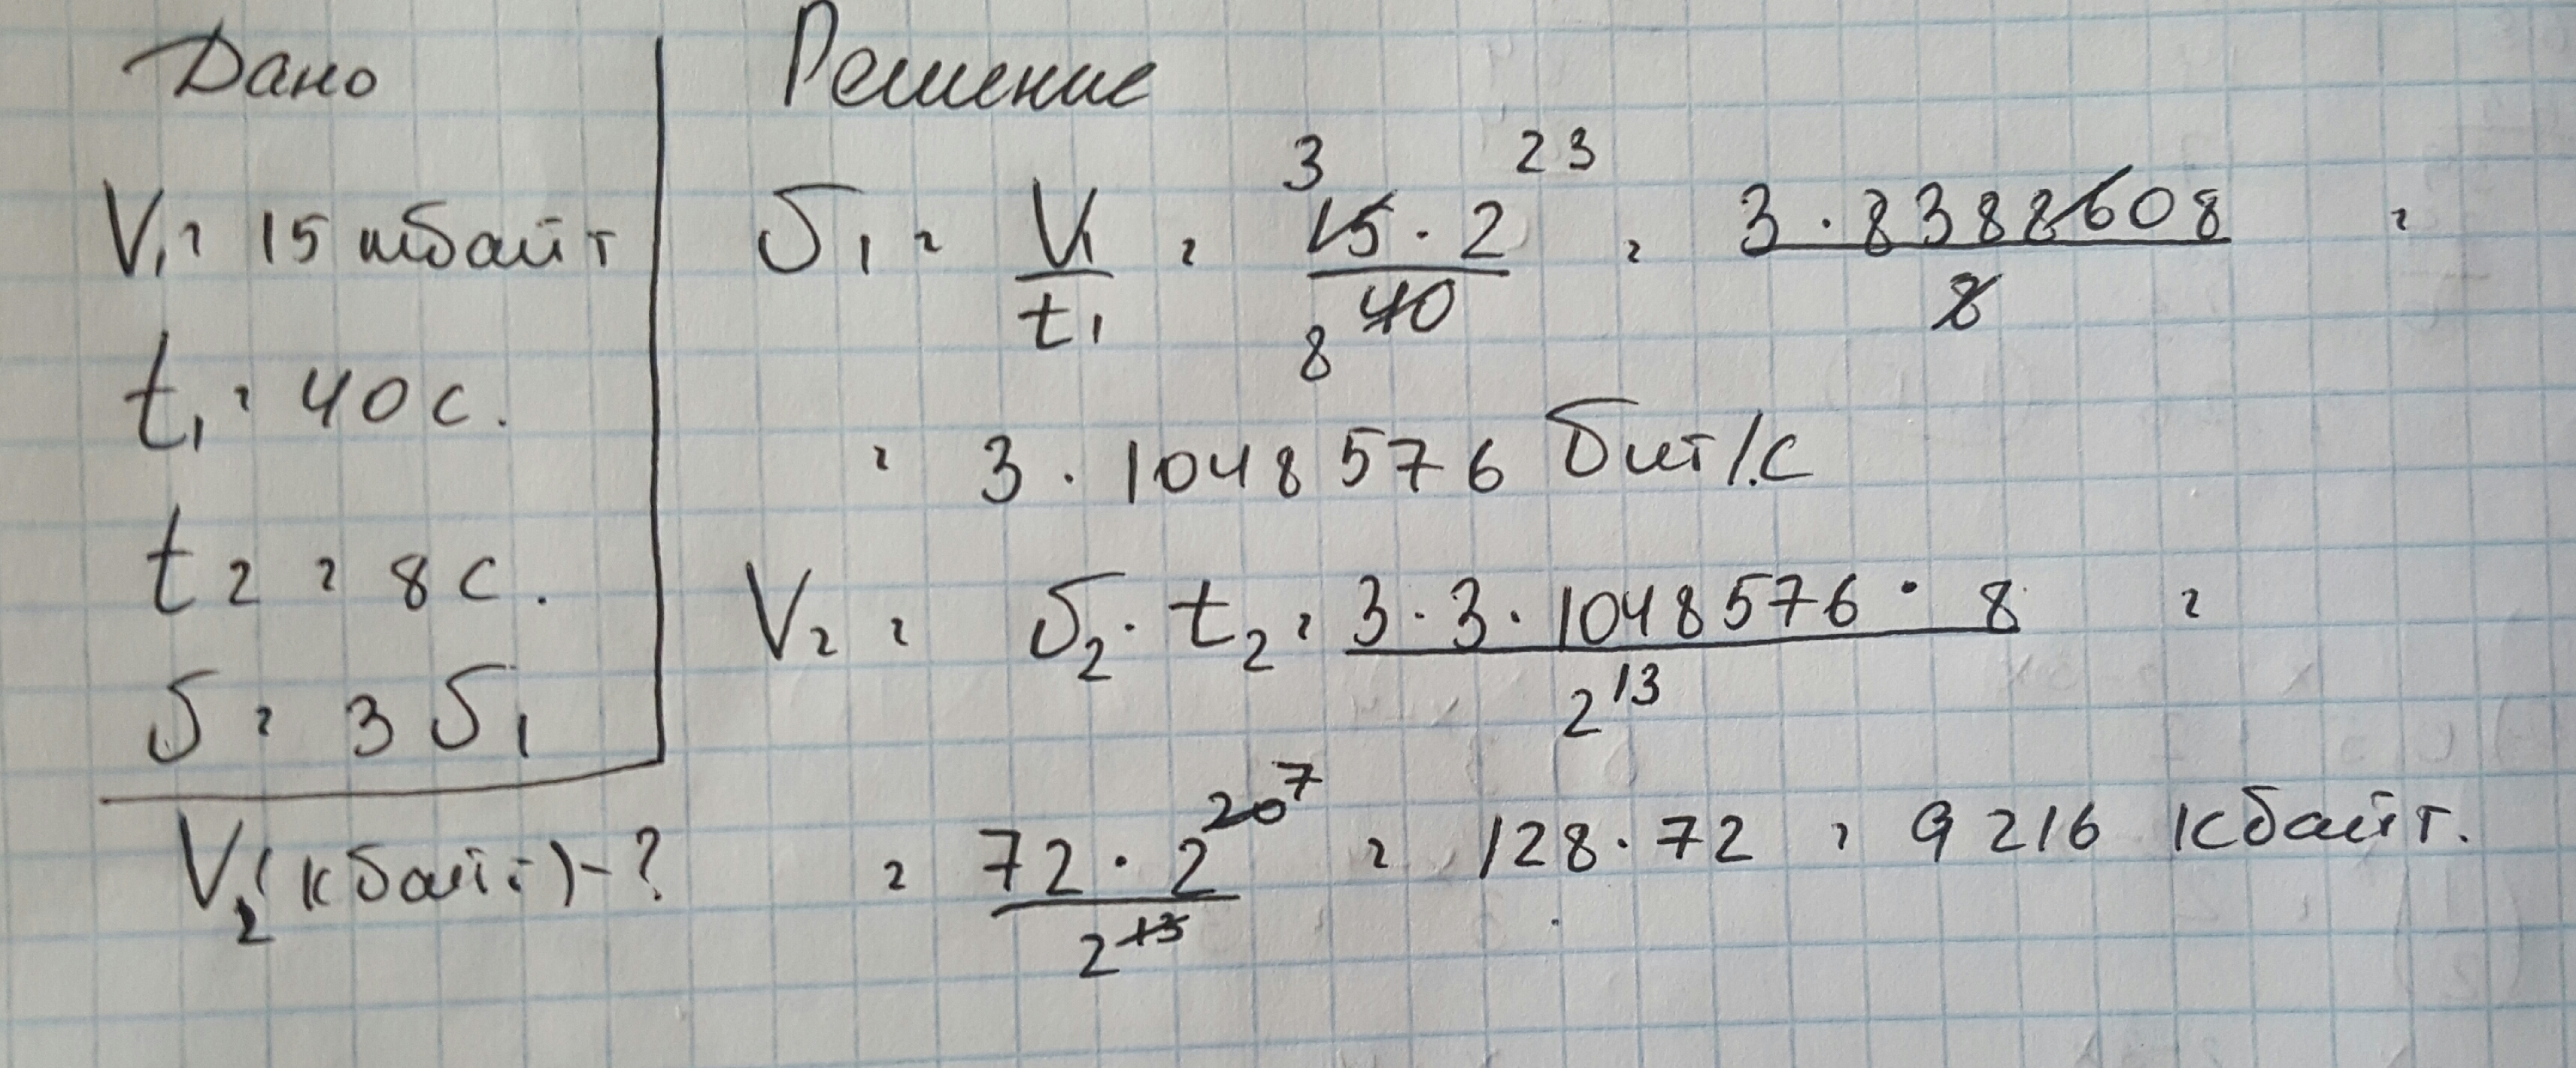 Дано
V₁ = 15 мбайт
t₁ = 40 с.
t₂ = 8 с.
υ = 3 υ₁
V₂ (кбайт) - ?
Решение
υ₁ = V₁/t₁ = 3 15 · 2²³ / 8 40 = 3 · 8388608 / 8 =
= 3 · 1048576 бит/с
V₂ = υ₂ · t₂ = 3 · 3 · 1048576 · 8 / 2¹³ =
= 72 · 2²⁰ ⁷ / 2¹³ = 128 · 72 = 9216 кбайт.